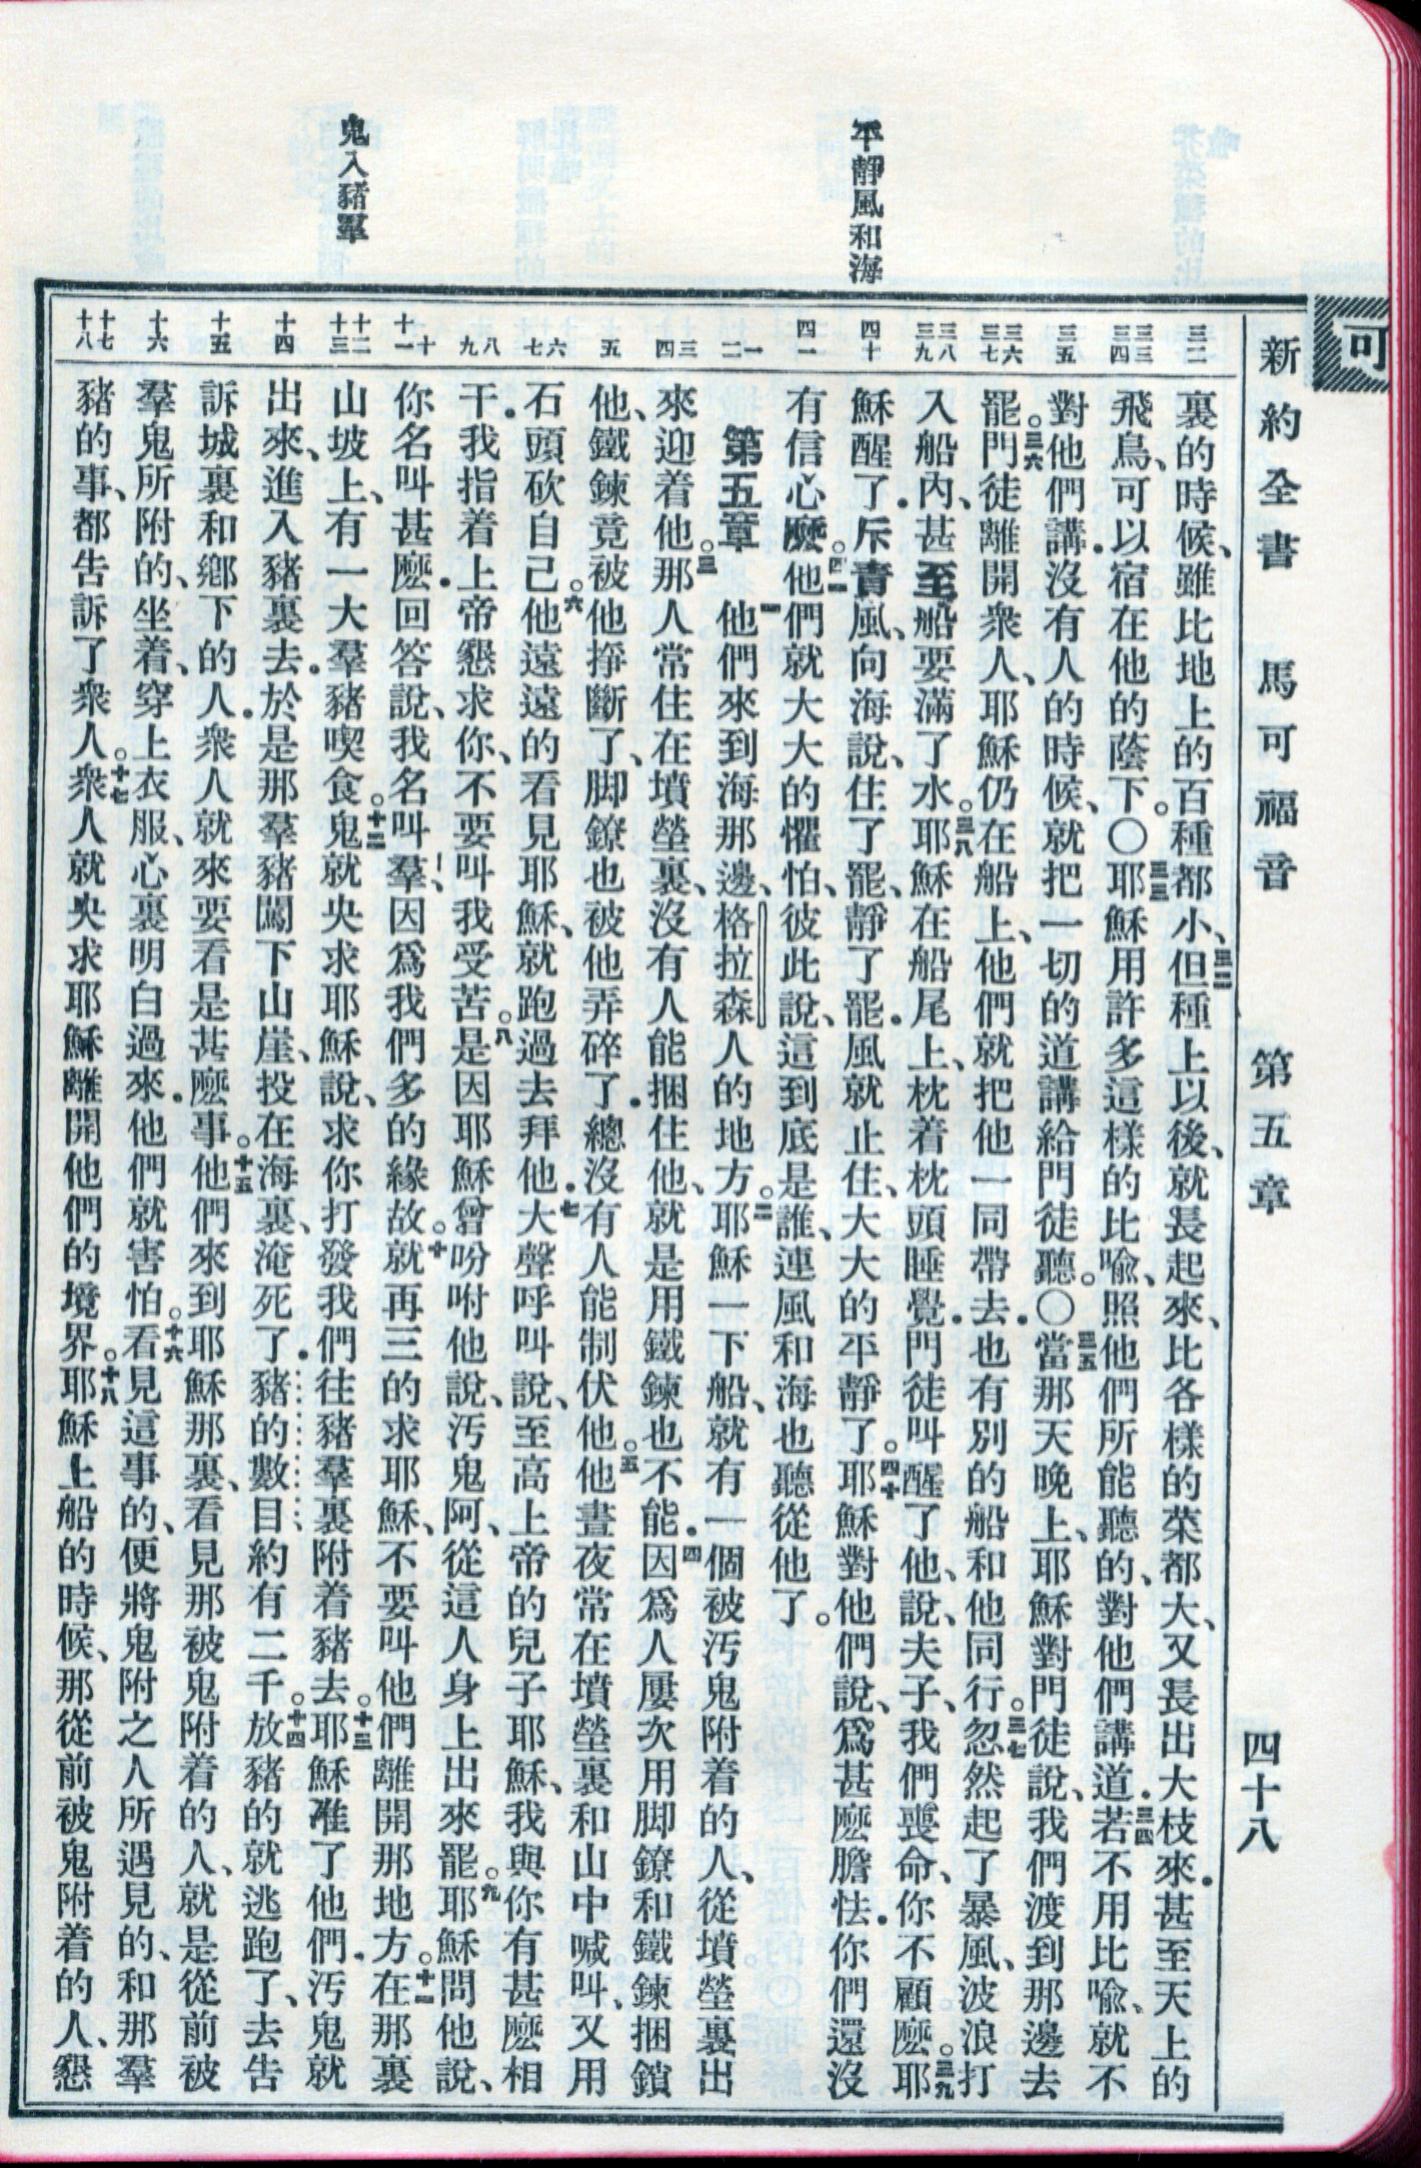 可
新約全書 馬可福音 第五章 四十八
平靜風和海
鬼入豬羣
三二
三三 三四
三五
三六 三七
三八 三九
四十
四一
一 二
三 四
五
六 七
八 九
十 十一
十二 十三
十四
十五
十六
十七 十八
裏的時候、雖比地上的百種都小、三二但種上以後、就長起來、比各樣的菜都大、又長出大枝來．甚至天上的
飛鳥、可以宿在他的蔭下。〇三三耶穌用許多這樣的比喻、照他們所能聽的、對他們講道．三四若不用比喻、就不
對他們講．沒有人的時候、就把一切的道講給門徒聽。〇三五當那天晚上、耶穌對門徒說、我們渡到那邊去
罷。三六門徒離開衆人、耶穌仍在船上、他們就把他一同帶去．也有別的船和他同行。三七忽然起了暴風、波浪打
入船內、甚至船要滿了水。三八耶穌在船尾上、枕着枕頭睡覺．門徒叫醒了他、說、夫子、我們喪命、你不顧麽。三九耶
穌醒了．斥責風、向海說、住了罷、靜了罷．風就止住、大大的平靜了。四十耶穌對他們說、爲甚麽膽怯．你們還沒
有信心麽。四一他們就大大的懼怕、彼此說、這到底是誰、連風和海也聽從他了。
第五章 一他們來到海那邊、格拉森人的地方。二耶穌一下船、就有一個被汚鬼附着的人、從墳塋裏出
來迎着他。三那人常住在墳塋裏、沒有人能捆住他、就是用鐵鍊也不能．四因爲人屢次用脚鐐和鐵鍊捆鎖
他、鐵鍊竟被他掙斷了、脚鐐也被他弄碎了．總沒有人能制伏他。五他晝夜常在墳塋裏和山中喊叫、又用
石頭砍自己。六他遠遠的看見耶穌、就跑過去拜他．七大聲呼叫說、至高上帝的兒子耶穌、我與你有甚麽相
干．我指着上帝懇求你、不要叫我受苦。八是因耶穌曾吩咐他說、汚鬼阿、從這人身上出來罷。九耶穌問他說、
你名叫甚麽．回答說、我名叫羣、因爲我們多的緣故。十就再三的求耶穌、不要叫他們離開那地方。十一在那裏
山坡上、有一大羣豬喫食。十二鬼就央求耶穌說、求你打發我們往豬羣裏附着豬去。十三耶穌准了他們．汚鬼就
出來、進入豬裏去．於是那羣豬闖下山崖、投在海裏、淹死了．豬的數目、約有二千。十四放豬的就逃跑了、去告
訴城裏和鄉下的人．衆人就來要看是甚麽事。十五他們來到耶穌那裏、看見那被鬼附着的人、就是從前被
羣鬼所附的、坐着、穿上衣服、心裏明白過來．他們就害怕。十六看見這事的、便將鬼附之人所遇見的、和那羣
豬的事、都告訴了衆人。十七衆人就央求耶穌離開他們的境界。十八耶穌上船的時候、那從前被鬼附着的人、懇